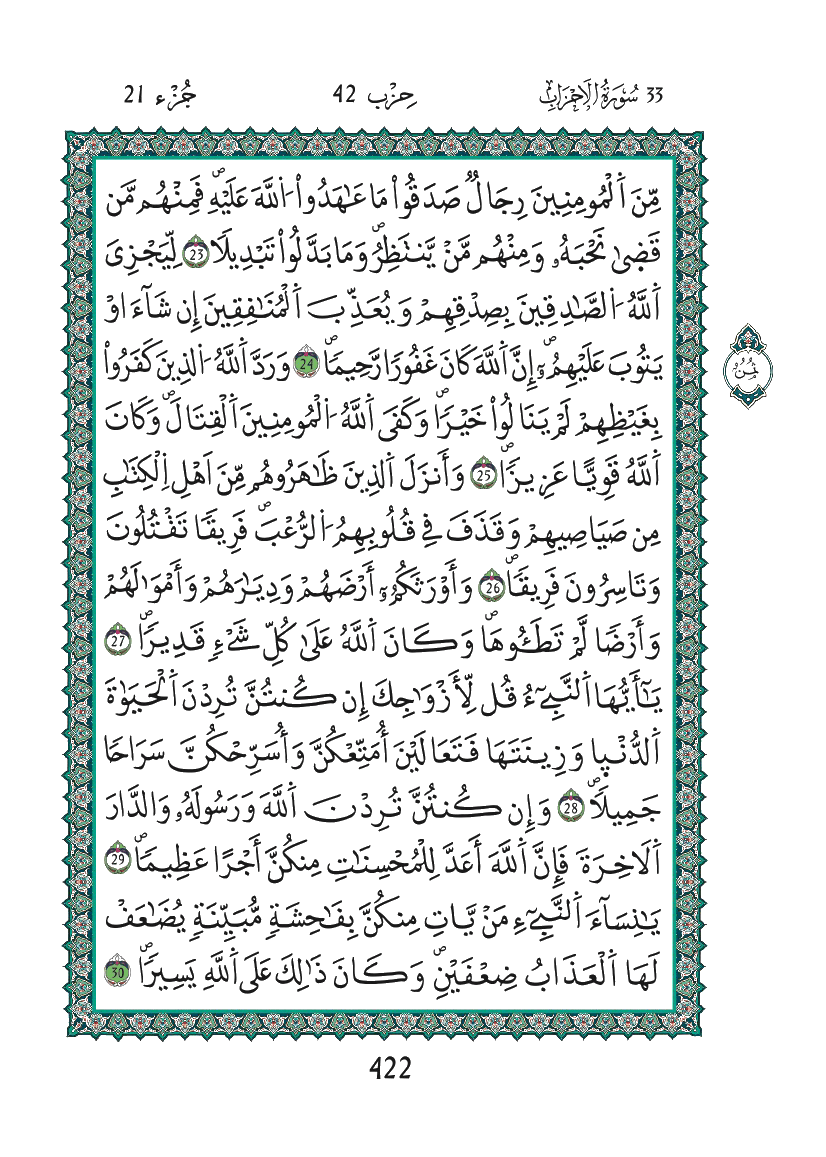 33 سُورَةُ الْأَحْزَابِ حِزْب 42 جُزْء 21
مِّنَ اَ۬لْمُومِنِينَ رِجَالٞ صَدَقُواْ مَا عَٰهَدُواْ اُ۬للَّهَ عَلَيْهِۖ فَمِنْهُم مَّن
قَضَىٰ نَحْبَهُۥ وَمِنْهُم مَّنْ يَّنتَظِرُۖ وَمَا بَدَّلُواْ تَبْدِيلاٗۖ 23 لِّيَجْزِيَ
اَ۬للَّهُ اُ۬لصَّٰدِقِينَ بِصِدْقِهِمْ وَيُعَذِّبَ اَ۬لْمُنَٰفِقِينَ إِن شَآءَ اوْ
يَتُوبَ عَلَيْهِمُۥٓۖ إِنَّ اَ۬للَّهَ كَانَ غَفُورٗا رَّحِيماٗۖ 24 وَرَدَّ اَ۬للَّهُ اُ۬لذِينَ كَفَرُواْ
بِغَيْظِهِمْ لَمْ يَنَالُواْ خَيْراٗۖ وَكَفَى اَ۬للَّهُ اُ۬لْمُومِنِينَ اَ۬لْقِتَالَۖ وَكَانَ
اَ۬للَّهُ قَوِيّاً عَزِيزاٗۖ 25 وَأَنزَلَ اَ۬لذِينَ ظَٰهَرُوهُم مِّنَ اَهْلِ اِ۬لْكِتَٰبِ
مِن صَيَاصِيهِمْ وَقَذَفَ فِي قُلُوبِهِمُ اُ۬لرُّعْبَۖ فَرِيقاٗ تَقْتُلُونَ
وَتَاسِرُونَ فَرِيقاٗۖ 26 وَأَوْرَثَكُمُۥٓ أَرْضَهُمْ وَدِيَٰرَهُمْ وَأَمْوَٰلَهُمْ
وَأَرْضاٗ لَّمْ تَطَـُٔوهَاۖ وَكَانَ اَ۬للَّهُ عَلَىٰ كُلِّ شَےْءٖ قَدِيراٗۖ 27
يَٰٓأَيُّهَا اَ۬لنَّبِےٓءُ قُل لِّأَزْوَٰجِكَ إِن كُنتُنَّ تُرِدْنَ اَ۬لْحَيَوٰةَ
اَ۬لدُّنْيَا وَزِينَتَهَا فَتَعَالَيْنَ أُمَتِّعْكُنَّ وَأُسَرِّحْكُنَّ سَرَاحاٗ
جَمِيلاٗۖ 28 وَإِن كُنتُنَّ تُرِدْنَ اَ۬للَّهَ وَرَسُولَهُۥ وَالدَّارَ
اَ۬لَاخِرَةَ فَإِنَّ اَ۬للَّهَ أَعَدَّ لِلْمُحْسِنَٰتِ مِنكُنَّ أَجْراً عَظِيماٗۖ 29
يَٰنِسَآءَ اَ۬لنَّبِےٓءِ مَنْ يَّاتِ مِنكُنَّ بِفَٰحِشَةٖ مُّبَيِّنَةٖ يُضَٰعَفْ
لَهَا اَ۬لْعَذَابُ ضِعْفَيْنِۖ وَكَانَ ذَٰلِكَ عَلَى اَ۬للَّهِ يَسِيراٗۖ 30
ثمن
422